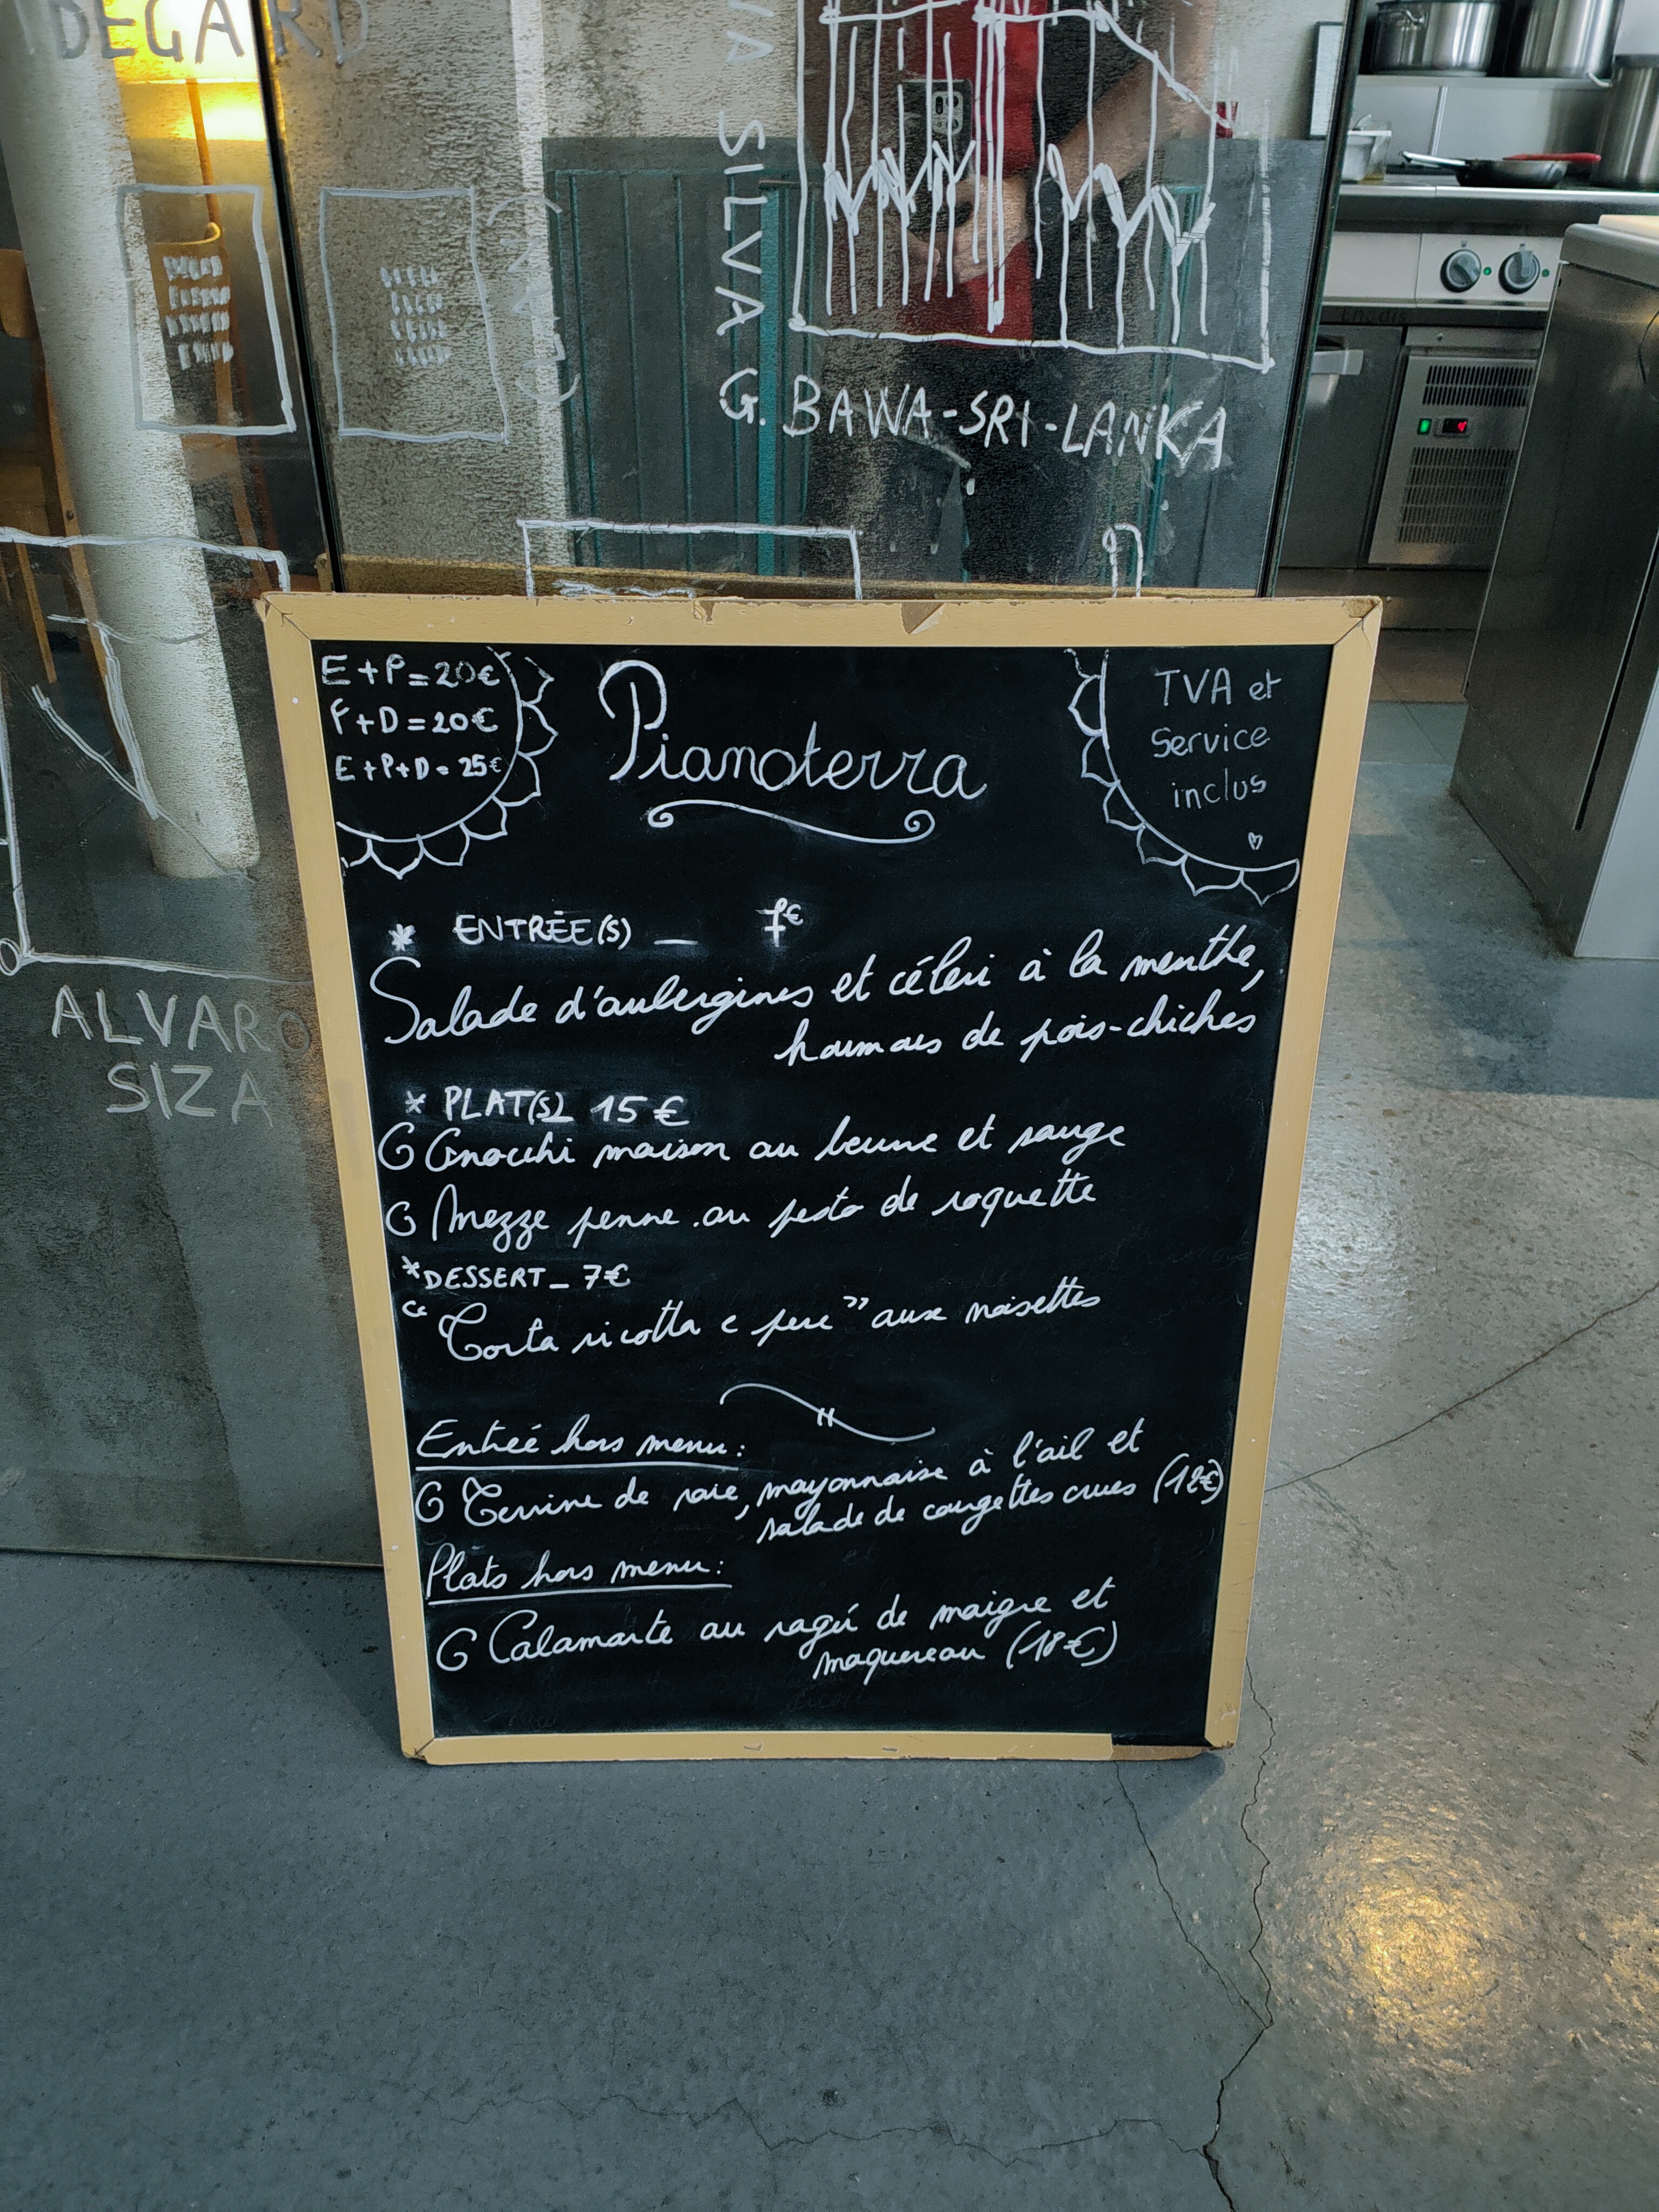 DEGARD
VA SILVA
G. BAWA-SRI-LANKA
ALVARO
SIZA
E+P=20€
P+D=20€
E+P+D=25€
Pianoterra
TVA et
Service
inclus
* ENTRÉE(S) _ 7€
Salade d'aubergines et céleri à la menthe,
houmous de pois-chiches
* PLAT(S)_ 15€
Gnocchi maison au beurre et sauge
Mezze penne au pesto de roquette
*DESSERT_ 7€
"Torta ricotta e pere" aux noisettes
Entreé hors menu:
Terrine de raie, mayonnaise à l'ail et
salade de courgettes crues (12€)
Plats hors menu:
Calamarte au ragú de maigre et
maquereau (18€)